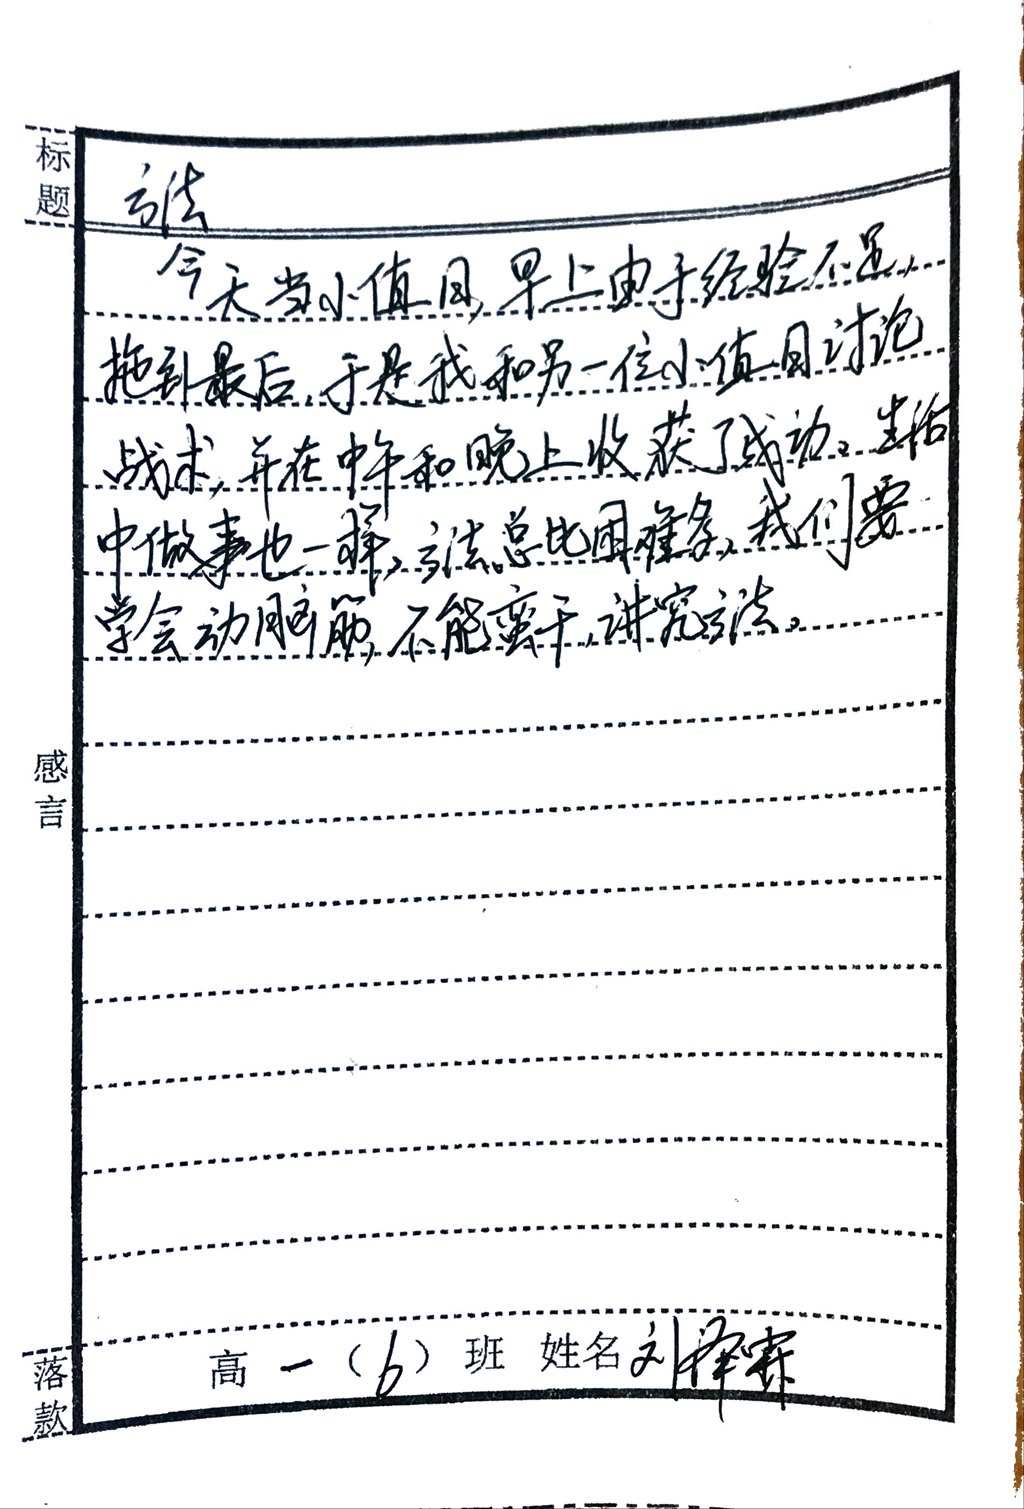 标题
方法
今天当小值日，早上由于经验不足，
拖到最后，于是我和另一位小值日讨论
战术，并在中午和晚上收获了成功。生活
中做事也一样，方法总比困难多，我们要
学会动脑筋，不能蛮干，讲究方法。
感言
落款
高一（6）班 姓名刘泽霖